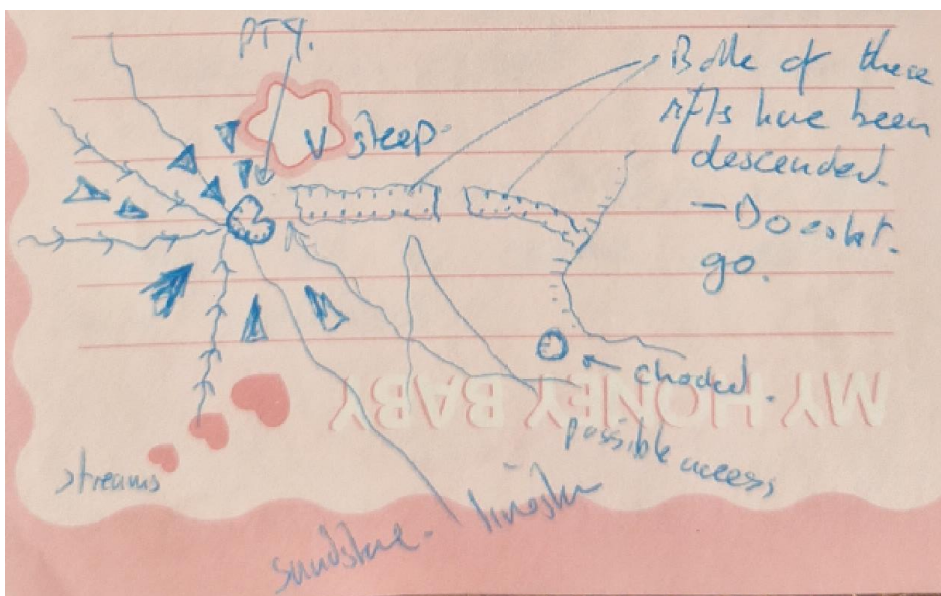 PTY.
V steep.
Bothe of these
rifts have been
descended.
- Doesn't.
go.
choked.
possible access
streams
sandstone - 
MY HONEY BABY